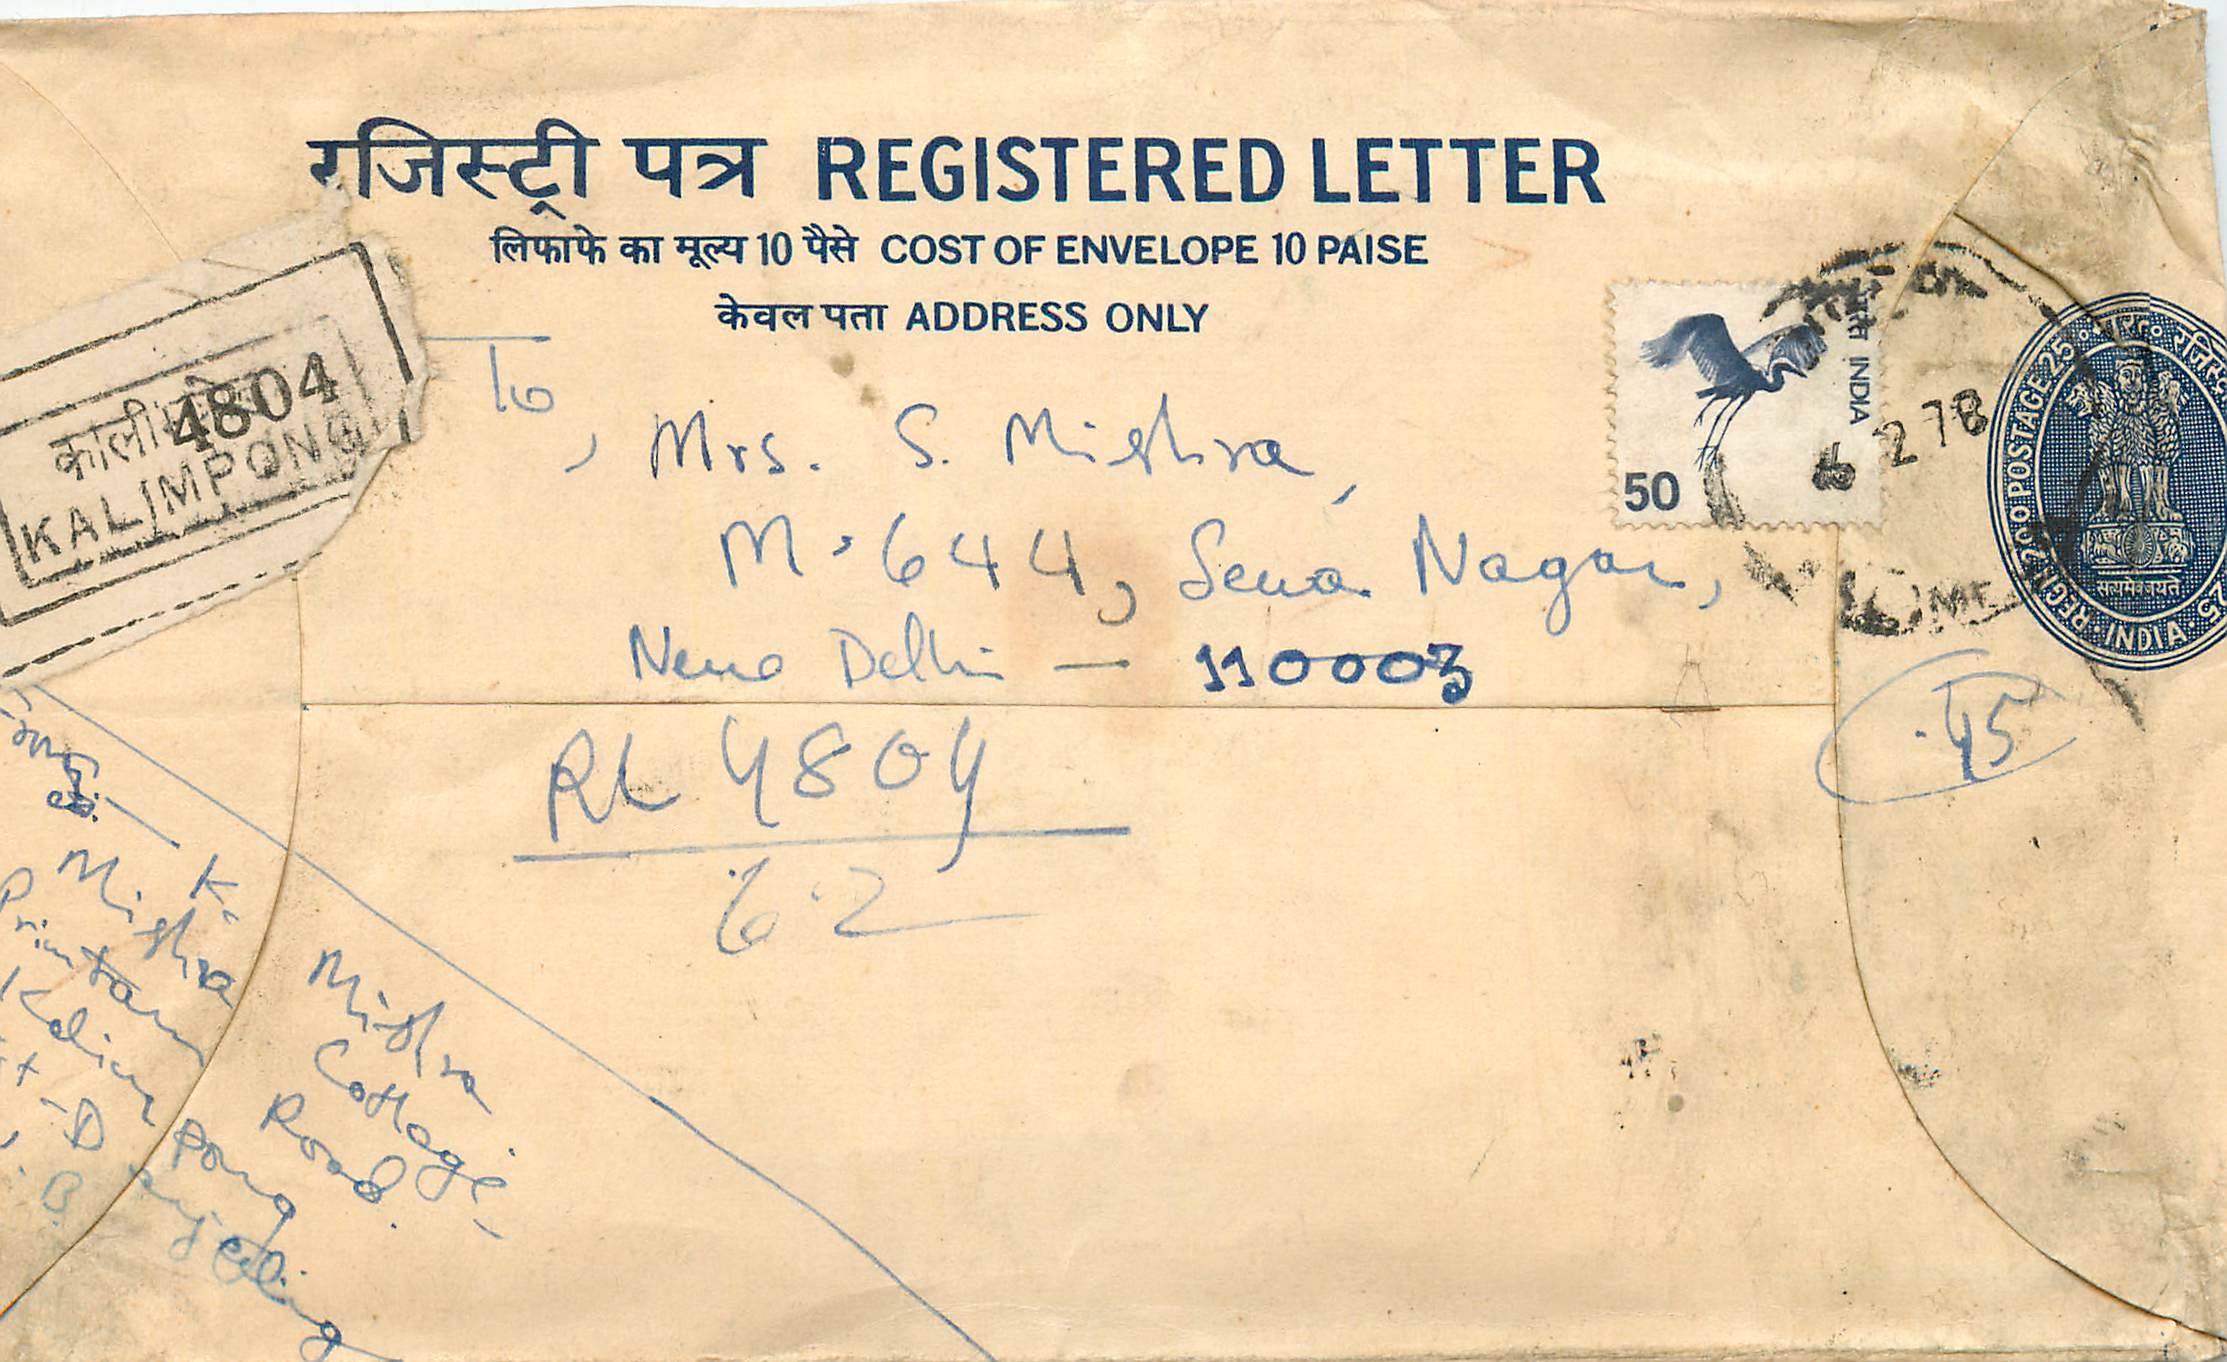 रजिस्ट्री पत्र REGISTERED LETTER
लिफाफे का मूल्य 10 पैसे COST OF ENVELOPE 10 PAISE
केवल पता ADDRESS ONLY
4804
KALIMPONG
भारत INDIA
50
6 2 78
REGN 2·00 POSTAGE 25
सत्यमेव जयते
INDIA
To,
Mrs. S. Mishra,
M·644, Sewa Nagar,
New Delhi — 110003
RL 4804
6·2
K.
Mishra
Mishra
Cottage
Road.
Kalimpong
Darjeeling